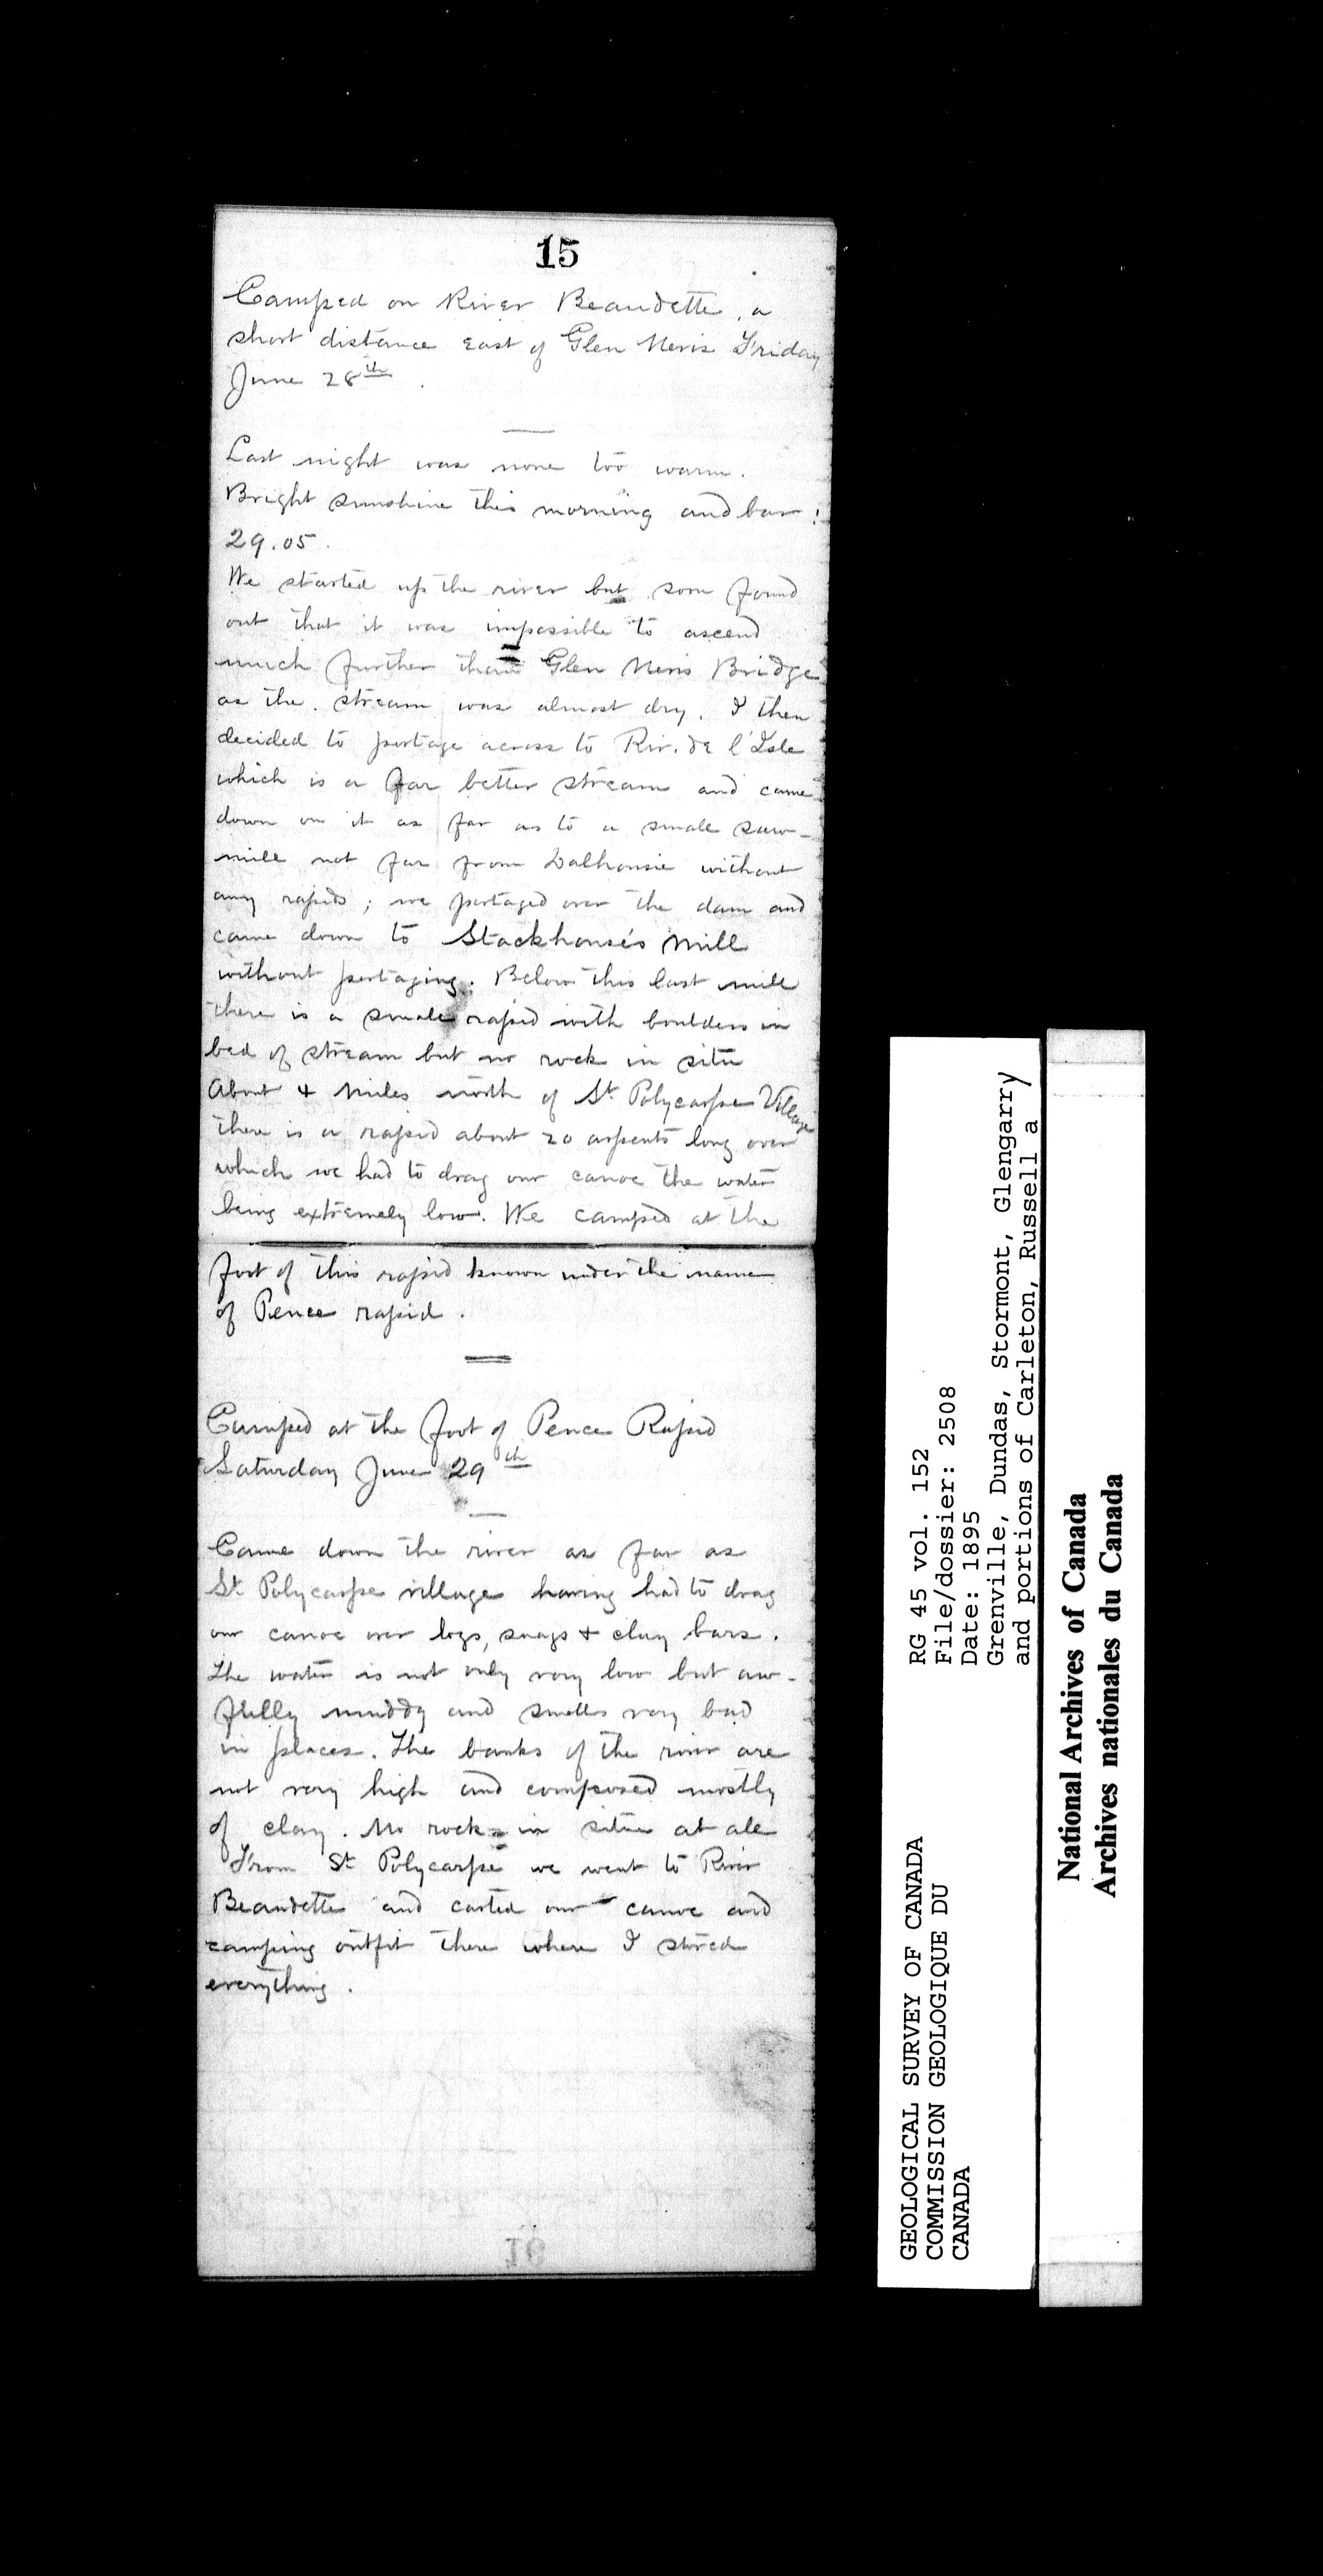 15
Camped on River Beaudette, a
short distance East of Glen Nevis Friday
June 28th.
Last night was none too warm.
Bright sunshine this morning and bar:
29.05.
We started up the river but soon found
out that it was impossible to ascend
much further than Glen Nevis Bridge
as the stream was almost dry. I then
decided to portage across to Riv. de l'Isle
which is a far better stream and came
down on it as far as to a small saw-
mill not far from Dalhousie without
any rapids; we portaged over the dam and
came down to Stackhouse's Mill
without portaging. Below this last mill
there is a small rapid with boulders in
bed of stream but no rock in situ
About 4 miles north of St Polycarpe Village
there is a rapid about 20 arpents long over
which we had to drag our canoe the water
being extremely low. We camped at the
foot of this rapid known under the name
of Pence rapid.
Camped at the foot of Pence Rapid
Saturday June 29th
Came down the river as far as
St Polycarpe village having had to drag
our canoe over logs, snags + clay bars.
The water is not only very low but aw-
fully muddy and smells very bad
in places. The banks of the river are
not very high and composed mostly
of clay. No rock in situ at all
From St Polycarpe we went to River
Beaudette and carted our canoe and
camping outfit there where I stored
everything.
16
GEOLOGICAL SURVEY OF CANADA
COMMISSION GEOLOGIQUE DU
CANADA
RG 45 vol. 152
File/dossier: 2508
Date: 1895
Grenville, Dundas, Stormont, Glengarry
and portions of Carleton, Russell a
National Archives of Canada
Archives nationales du Canada